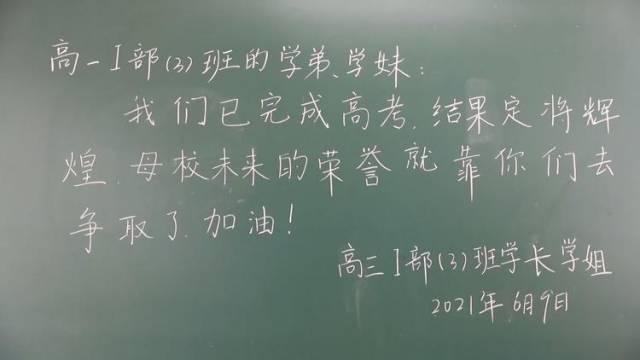 高一Ⅰ部(3)班的学弟、学妹:
我们已完成高考,结果定将辉
煌,母校未来的荣誉就靠你们去
争取了,加油!
高三Ⅰ部(3)班学长学姐
2021年6月9日